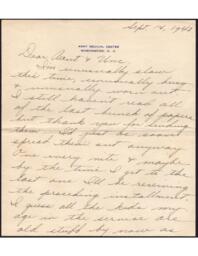 Sept 14, 1942
ARMY MEDICAL CENTER
WASHINGTON, D. C.
Dear Aunt & Unc,
I'm unusually slow
this time, unusually busy
& unusually worn out. I
still haven't read all
of the last bunch of papers
but thank you for sending
them. I'd just as soon
spread them out anyway
one every nite & maybe
by the time I get to the
last one I'll be receiving
the preceding installment.
I guess all the kids my
age in the service are
old stuff by now as